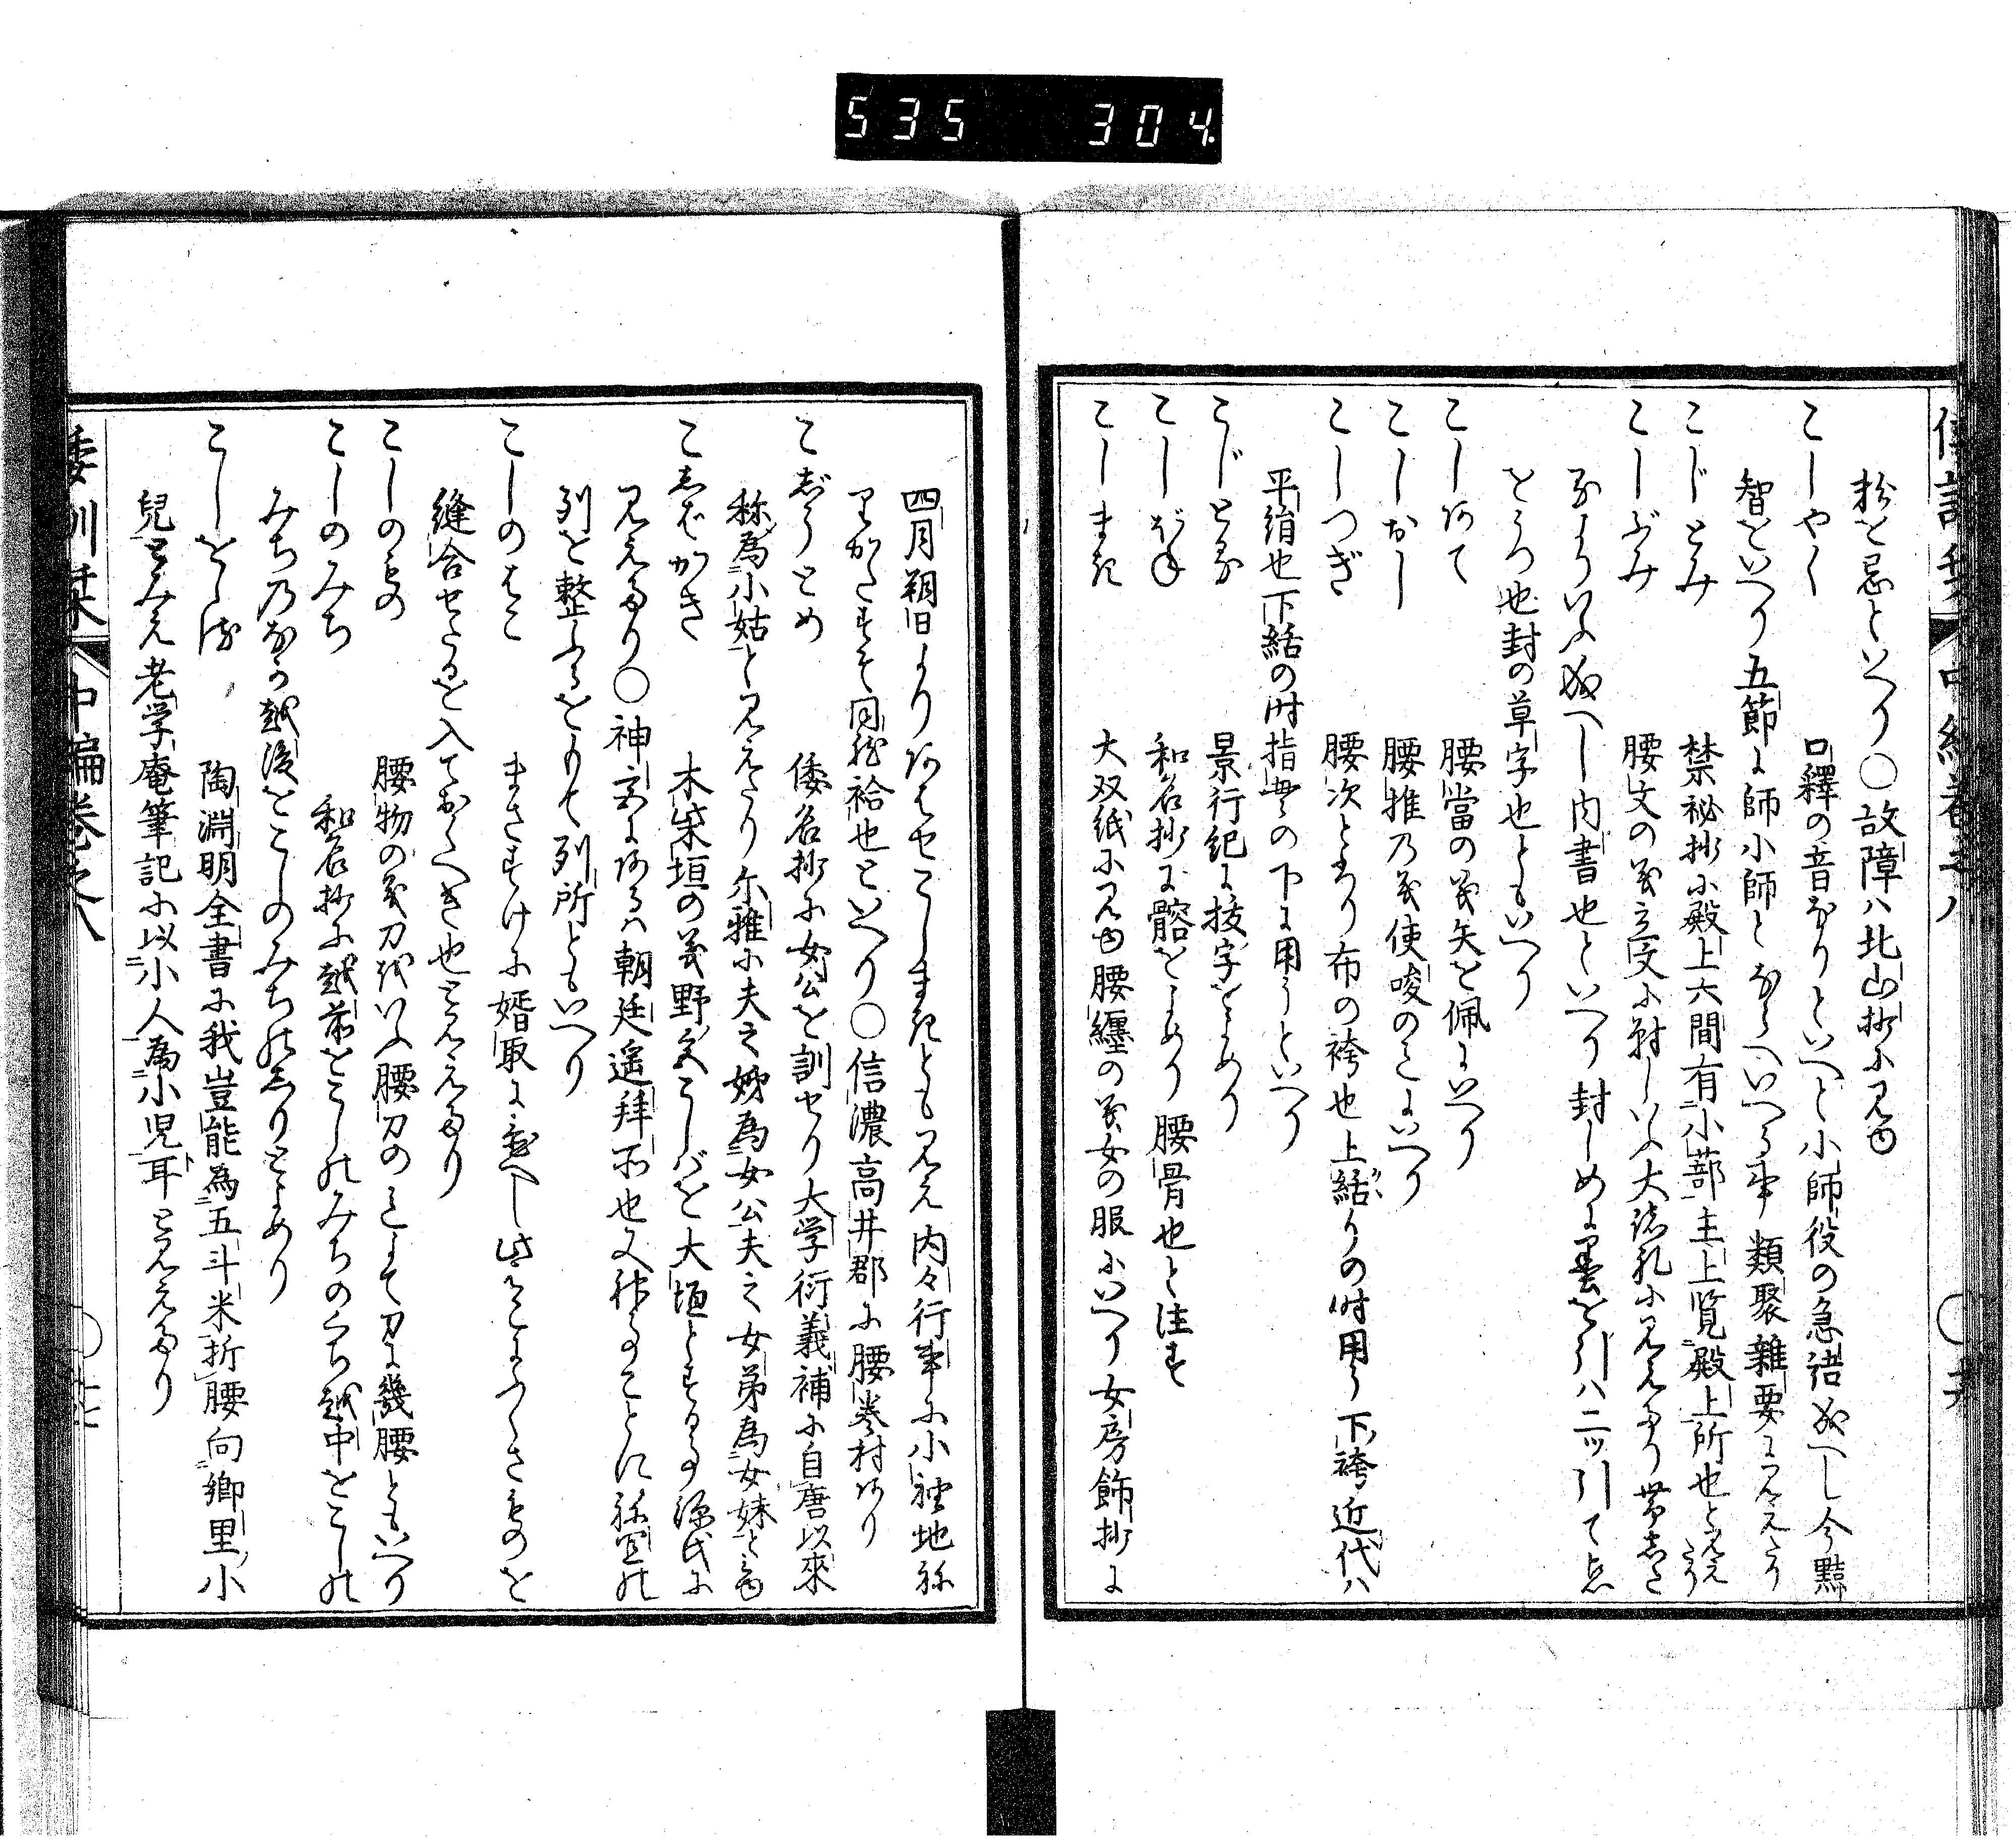 535 304
松を忌といへり○故障ハ北山抄に見ゆ
こしやく 口釋の音なりといへと小師役の急語成へし今黠
智をいへり五節に師小師とならへいへる事類聚雜要に見えたり
こじとみ 禁祕抄に殿上六間有小蔀主上覧殿上所也と見えたり
こしぶみ 腰文の義立文に對しいふ大諸礼に見えたり帯した
るよりいふ成へし内書也といへり封しめに墨を引ハ二ツ引て点
をうつ也封の草字也ともいへり
こしあて 腰當の義矢を佩にいへり
こしおし 腰推乃義使唆のことにいへり
こしつぎ 腰次とかけり布の袴也上結りの時用う下袴近代ハ
平絹也下結の時指貫の下に用うといへり
こじとる 景行紀に拔字をよめり
こしぼね 和名抄に髂をよめり腰骨也と注す
こしまき 大双紙に見ゆ腰纏の義女の服にいへり女房飾抄に
四月朔日よりあはせこしまきとも見え内々行事に小袖地祢
りかたすそ同能袷也といへり○信濃高井郡に腰巻村あり
こじうとめ 倭名抄に女公を訓せり大学衍義補に自唐以來
称為小姑と見えたり尓雅に夫之姊為女公夫之女弟為女妹と見ゆ
こしばかき 木柴垣の義野宮こしばを大垣とする事源氏に
見えたり○神宮にあるハ朝廷遥拜所也又神事ことに祢宜の
列を整ふるをもて列所ともいへり
こしのはこ まさすけに婿取に通へし此はこにふくさものを
縫合せたるを入ておくへき也と見えたり
こしのもの 腰物の義刀をいふ腰刀のことにて刀に幾腰ともいへり
こしのみち 和名抄に越前をこしのみちのくち越中をこしの
みち乃なか越後をこしのみちのしりとよめり
こしををる 陶淵明全書に我豈能為五斗米折腰向鄉里小
兒とみえ老学庵筆記に以小人為小児耳と見えたり
倭訓栞 中編巻之八